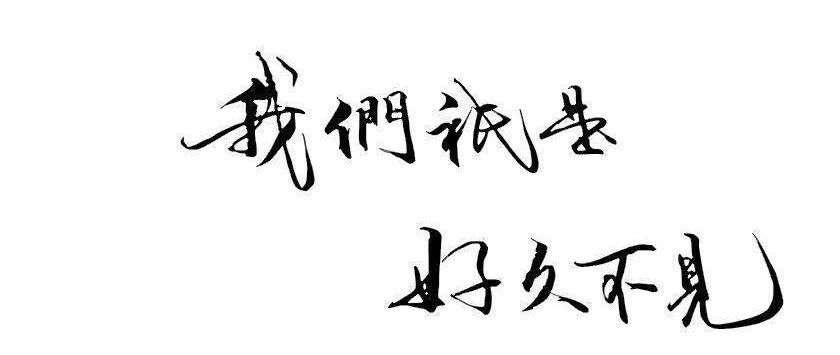 我們祇是
好久不見